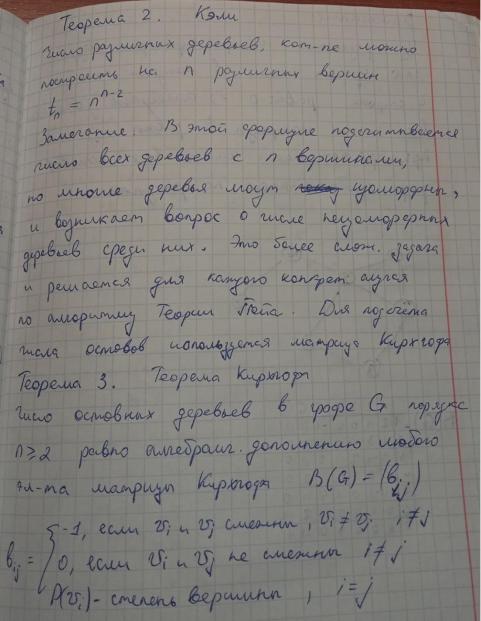 Теорема 2. Кэли
Число различных деревьев, кот-ые можно
построить на n различных вершин
tₙ = nⁿ⁻²
Замечание. В этой формуле подсчитывается
число всех деревьев с n вершинами,
но многие деревья могут изоморфны,
и возникает вопрос о числе неизоморфных
деревьев среди них. Это более слож. задача
и решается для каждого конкрет случая
по алгоритму Теории Пойа. Для подсчёта
числа остовов используется матрица Кирхгофа
Теорема 3. Теорема Кирхгофа
Число остовных деревьев в графе G порядка
n ≥ 2 равно алгебраич. дополнению любого
эл-та матрицы Кирхгофа B(G) = (bᵢⱼ)
bᵢⱼ = { -1, если vᵢ и vⱼ смежны, vᵢ ≠ vⱼ i ≠ j
0, если vᵢ и vⱼ не смежны i ≠ j
P(vᵢ) - степень вершины, i = j